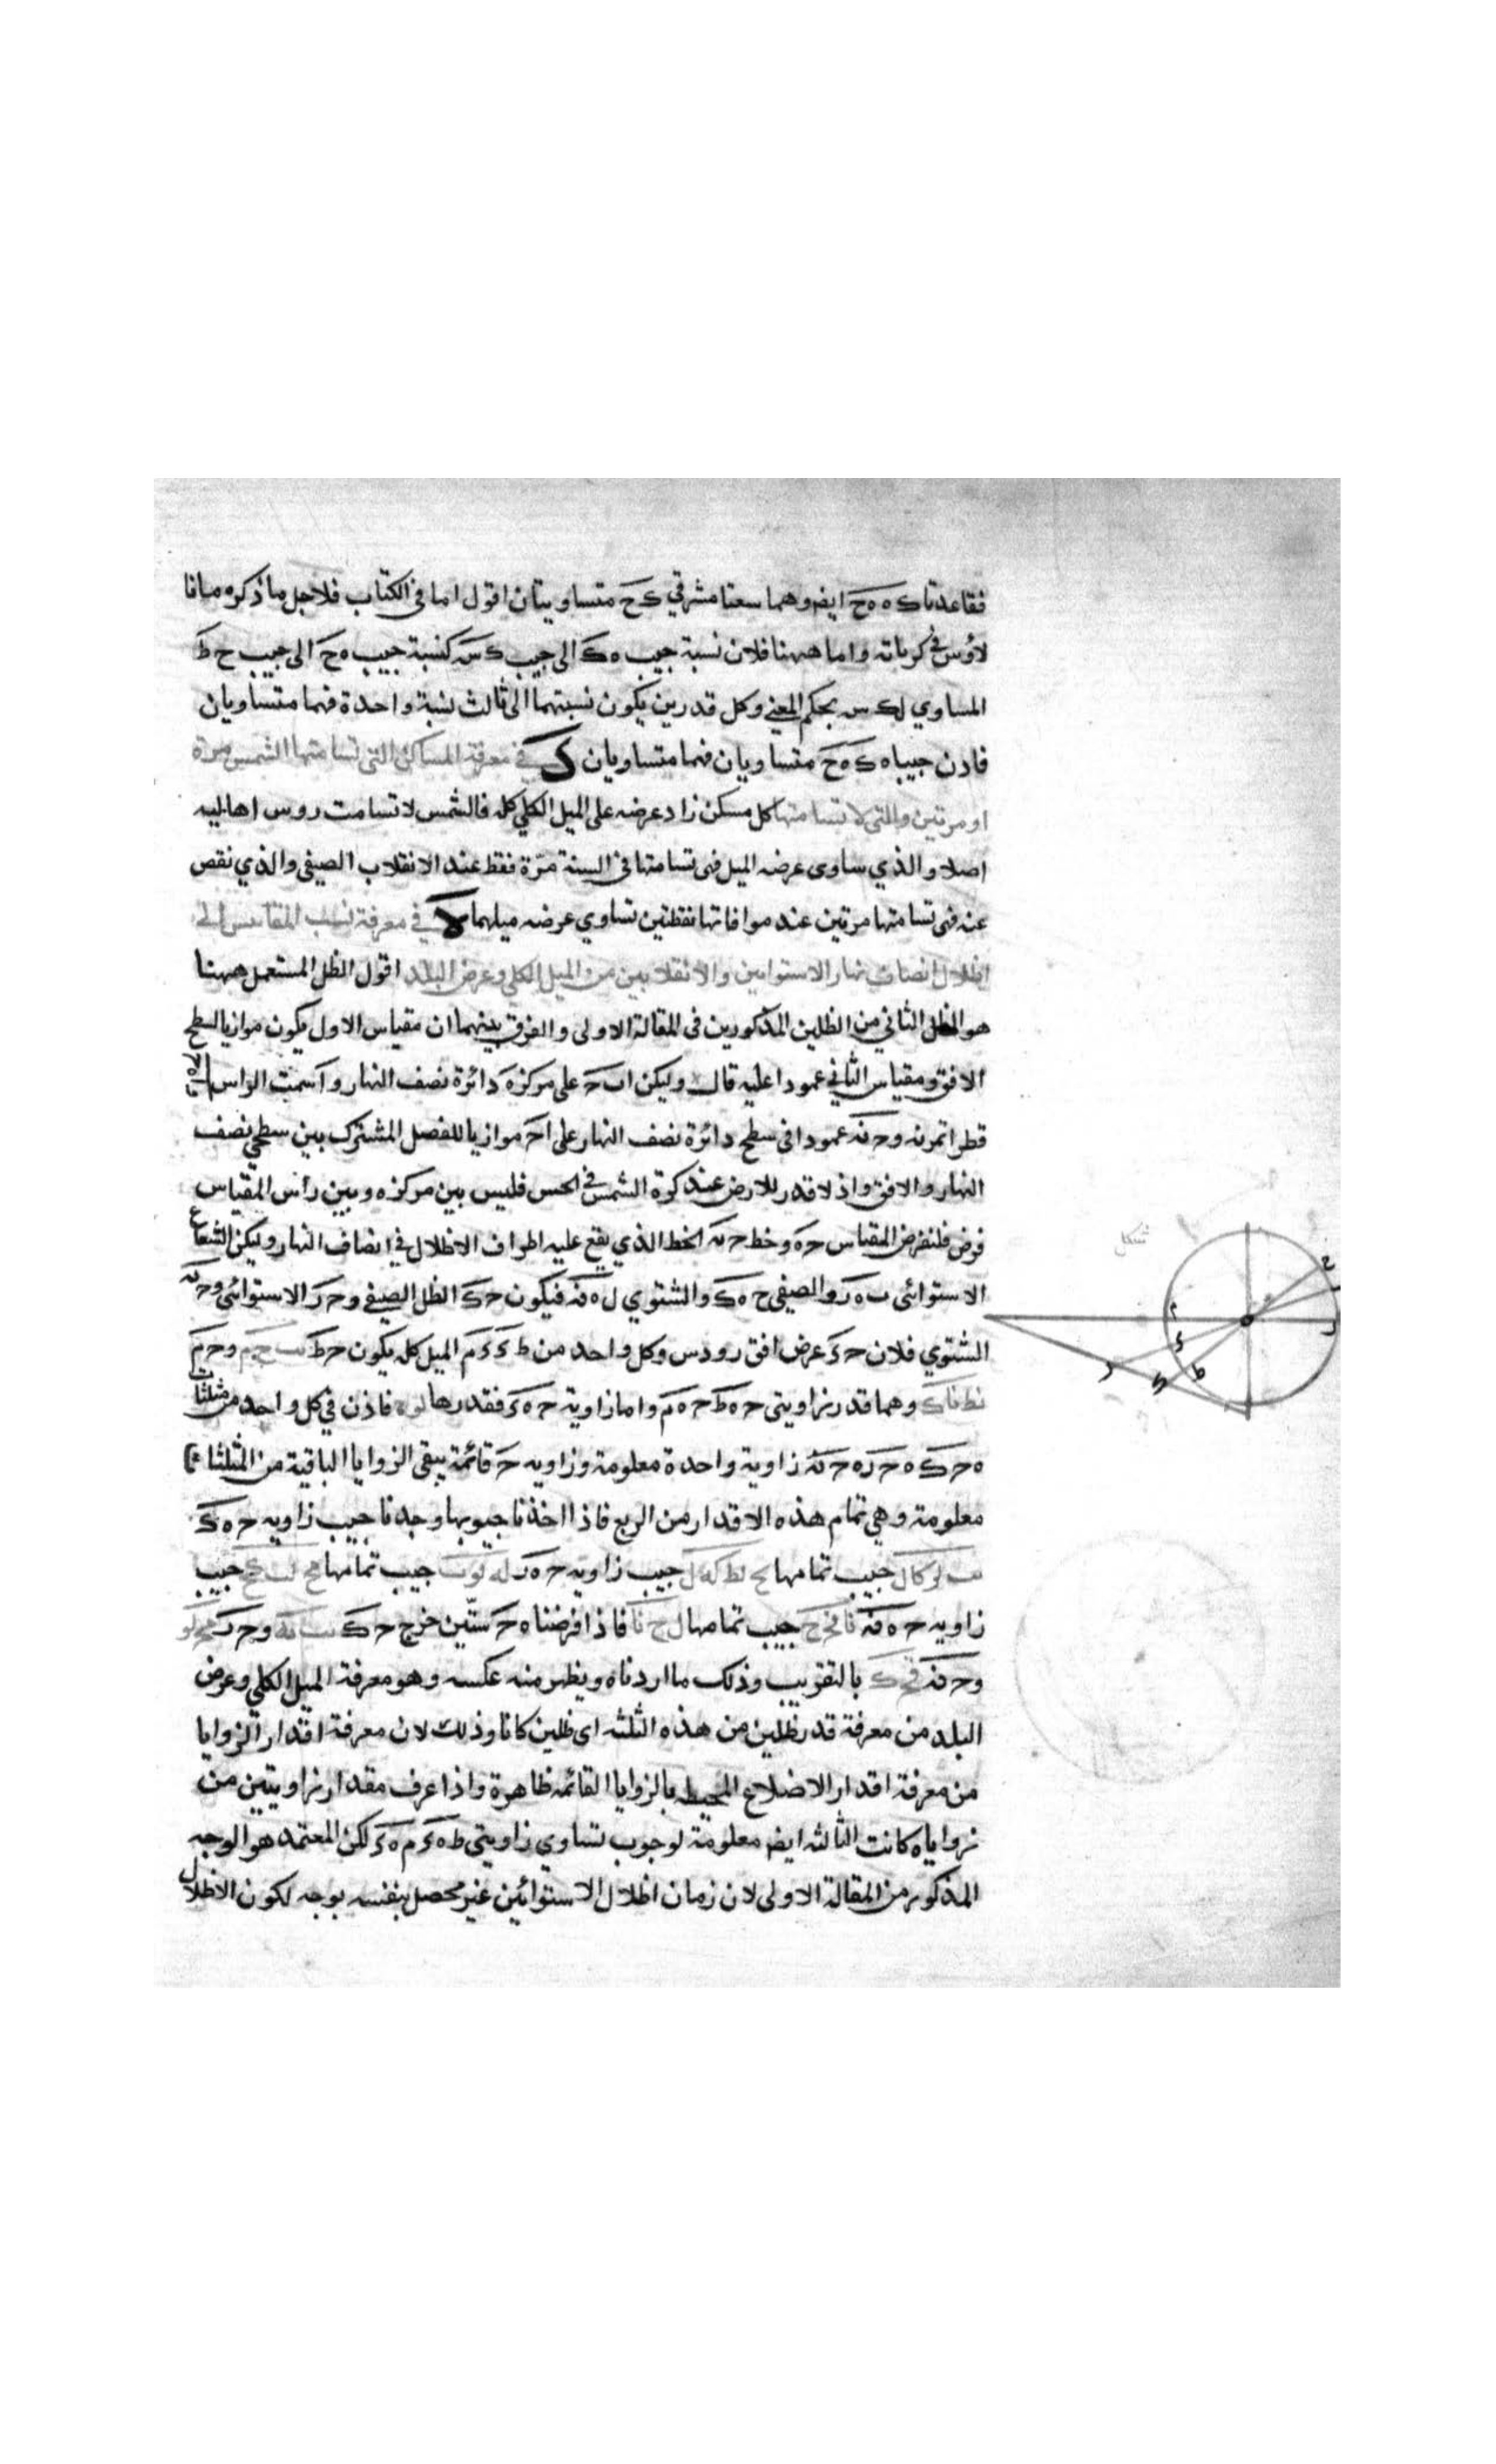 فقاعدتا ك ه ه ح ايضا وهما سعتا مشرقي ك ح متساويتان اقول اما في الكتاب فلاجل ما ذكره مانا
لاؤس في كرياته واما ههنا فلان نسبة جيب ه ك الى جيب ك س كنسبة جيب ه ح الى جيب ح ط
المساوي لك س بحكم المعني وكل قدرين يكون نسبتهما الى ثالث نسبة واحدة فهما متساويان
فاذن جيبا ه ك ه ح متساويان فهما متساويان ك في معرفة المساكن التي تسامتها الشمس مرة
او مرتين والتي لا تسامتها كل مسكن زاد عرضه على الميل الكلي كله فالشمس لا تسامت روس اهاليه
اصلا والذي ساوى عرضه الميل فهى تسامتها في السنة مرّة فقط عند الانقلاب الصيفي والذي نقص
عنه فهى تسامتها مرتين عند موافاتها نقطتين تساوي عرضه ميلهما لا في معرفة نسب المقاييس الى
اظلال انصاف نهار الاستوايين والانقلابين من الميل الكلي وعرض البلد اقول الظل المستعمل ههنا
هو الظل الثاني من الظلين المذكورين في المقالة الاولى والفرق بينهما ان مقياس الاول يكون موازيا لسطح
الافق ومقياس الثاني عمودا عليه قال وليكن اب ح على مركز ه دائرة نصف النهار وا سمت الراس
قطرا نمرنه و ح نه عمودا في سطح دائرة نصف النهار على ا ح موازيا للفصل المشترك بين سطحي نصف
النهار والافق واذ لا قدر للارض عند كرة الشمس في الحس فليس بين مركز ه وبين رأس المقياس
فرض فلنفرض المقياس ح ه وخط ح نه الخط الذي يقع عليه اطراف الاظلال في انصاف النهار وليكن الشعاع
الاستوائي ب ه ر والصيفي ح ه ك والشتوي ل ه نه فيكون ح ك الظل الصيفي و ح ر الاستوائي و ح نه
الشتوي فلان ح ء عرض افق رودس وكل واحد من ط ء ء م الميل كله يكون ح ط و ح م
نط نا ك وهما قدر زاويتي ح ه ط ح ه م واما زاوية ح ه ء فقدرها لو ه فاذن في كل واحد من مثلثات
ه ح ك ه ح ر ه ح نه زاوية واحدة معلومة وزاويه ح قائمة يبقى الزوايا الباقية من المثلثات
معلومة وهي تمام هذه الاقدار من الربع فاذا اخذنا جيوبها وجدنا جيب زاويه ح ه ك
جيب تمامها جيب زاويه ح ه ر جيب تمامها جيب
زاويه ح ه نه جيب تمامها فاذا فرضنا ه ح ستّين خرج ح ك و ح ر
و ح نه بالتقريب وذلك ما اردناه ويظهر منه عكسه وهو معرفة الميل الكلي وعرض
البلد من معرفة قدر ظلين من هذه الثلثه اى ظلين كانا وذلك لان معرفة اقدار الزوايا
من معرفة اقدار الاضلاع المحيطه بالزوايا القائمه ظاهرة واذا عرف مقدار زاويتين من
زوايا ه كانت الثالثه ايضا معلومة لوجوب تساوي زاويتي ط ه ء م ه ء لكن المعتمد هو الوجه
المذكور من المقالة الاولى لان زمان اظلال الاستوائين غير محصل بنفسه بوجه لكون الاظلال
شكل